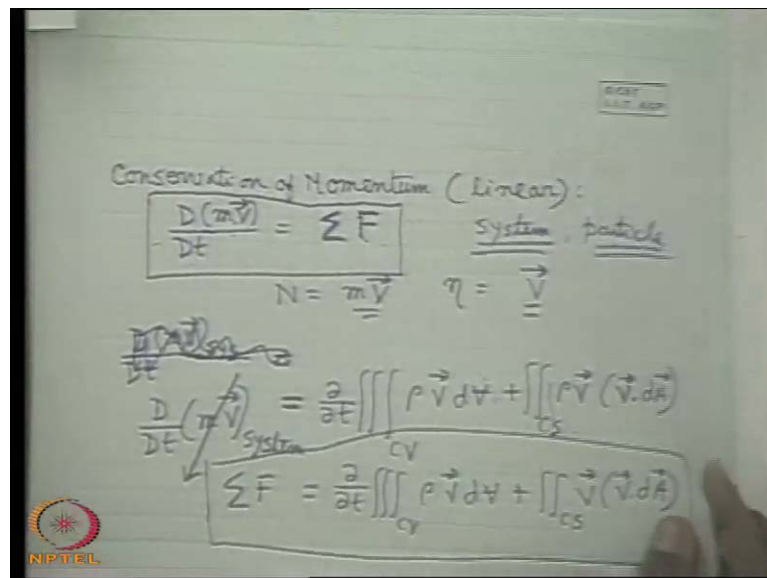 Conservation of Momentum (linear):
D(m\vec{V})/Dt = Σ F system, particle
N = m\vec{V} η = \vec{V}
D/Dt (m\vec{V})_{system} = ∂/∂t ∭_{CV} ρ\vec{V} dV + ∬_{CS} ρ\vec{V} (\vec{V}.d\vec{A})
Σ F = ∂/∂t ∭_{CV} ρ\vec{V} dV + ∬_{CS} \vec{V} (\vec{V}.d\vec{A})
NPTEL